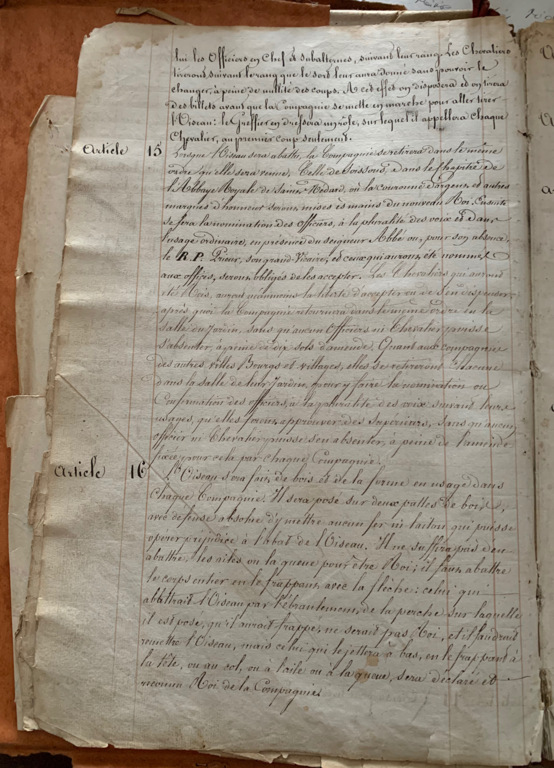 lui les Officiers en Chef & Subalternes, suivant leur rang. Les Chevaliers
tireront, suivant le rang que le sort leur aura donné sans pouvoir le
changer, à peine de nullité des coups. A cet effet on disposera et on tirera
des billets avant que la Compagnie se mette en marche pour aller tirer
l'Oiseau: le Greffier en dressera un rôle, sur lequel il appellera chaque
Chevalier, au premier coup seulement.
Article 15 Lorsque l'Oiseau sera abattu, la Compagnie se retirera dans le même
ordre qu'elle sera venue, Celle de Soissons, dans le Chapitre de
l'Abbaye Royale de Saint Médard, où la couronne d'argent et autres
marques d'honneur seront mises ès mains du nouveau Roi. Ensuite
se fera la nomination des Officiers, à la pluralité des voix et dans
l'usage ordinaire, en présence du seigneur Abbé ou, pour son absence,
le R. P. Prieur, son grand Vicaire, et ceux qui auront été nommés
aux offices, seront obligés de les accepter. Les Chevaliers qui auront
été Rois, auront néanmoins la liberté d'accepter ou de s'en dispenser,
après quoi la Compagnie retournera dans le même ordre en la
salle du Jardin, sans qu'aucun Officiers ni Chevalier puisse
s'absenter, à peine de dix sols d'amende. Quant aux compagnies
des autres villes Bourgs et villages, elles se retireront chacune
dans la salle de leur Jardin, pour y faire la nomination ou
Confirmation des officiers, à la pluralité des voix suivant leurs
usages, qu'elles feront approuver des Supérieurs, sans qu'aucun
officier ni Chevalier puisse s'en absenter, à peine de l'amende
fixée pour cela par chaque Compagnie.
Article 16 L'Oiseau sera fait de bois et de la forme en usage dans
chaque Compagnie. Il sera posé sur deux pattes de bois,
avec défense absolue d'y mettre aucun fer ni laiton qui puisse
opérer préjudice à l'abat de l'Oiseau. Il ne suffira pas d'en
abattre les aîles ou la queue pour être Roi; il faut abattre
le corps entier en le frappant avec la flèche: celui qui
abbattrait l'Oiseau par l'ébranlement de la perche sur laquelle
il est posé, qu'il auroit frappé, ne serait pas Roi, et il faudrait
remettre l'Oiseau, mais celui qui le jettera à bas, en le frappant à
la tête, ou au col, ou à l'aile ou à la queue, sera déclaré et
reconnu Roi de la Compagnie.